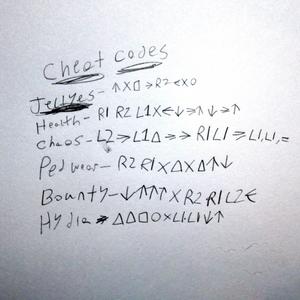 Cheat codes
Jettyes - ↑X□→R2←XO
Health - R1 R2 L1X←↓→↑↓→↑
Chaos - L2→L1△→→R1L1→L1,L1,=
Ped wear - R2R1X△X△↑↓
Bounty - ↓↑↑↑XR2R1L2←
Hydia → △△□OXL1L1↓↑